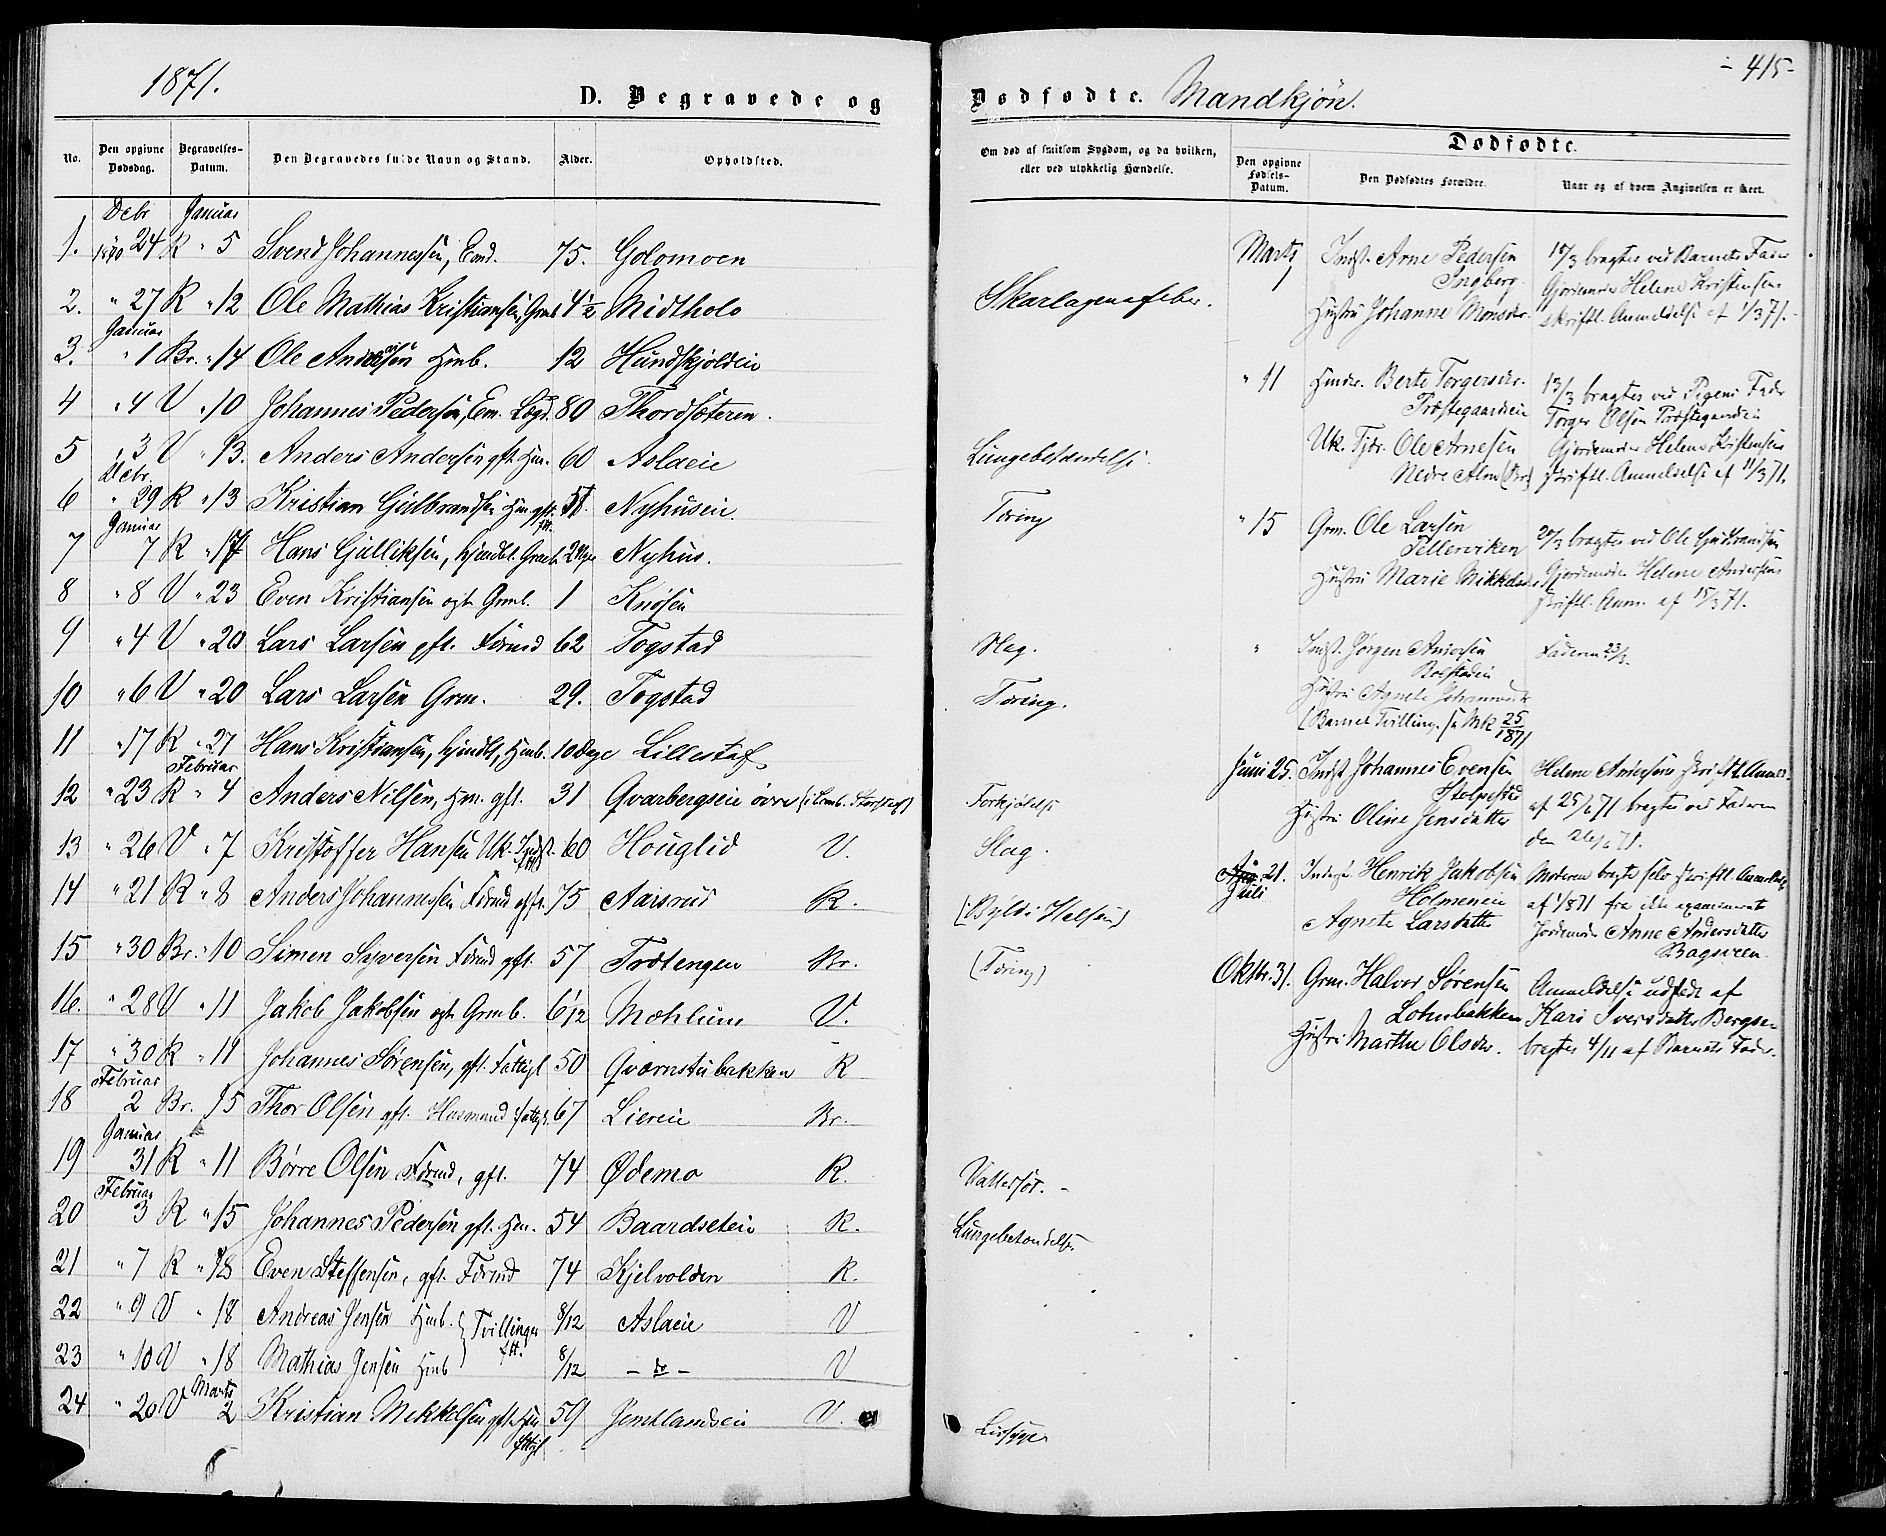 1871.
D. Begravede og
No.
Den opgivne Dødsdag.
Begravelses-Datum.
Den Begravedes fulde Navn og Stand.
Alder.
Opholdsted.
Debr Januar
1. 1870 24 R " 5 Svend Johannessen, Emd. 75. Golomoen
2. " 27 R " 12 Ole Mathias Kristiansen, Grmb 4½ Midtholo
Januar
3. " 1 Br. " 14 Ole Andersen Hmb. 12 Hundskjoldeie
4 " 4 V " 10 Johannes Pedersen, Em. Lægd. 80 Thordsæteren.
5 " 3 V " 13. Anders Andersen gft. Hm. 60 Aslaeie
Debr.
6 " 29 R " 13 Kristian Gulbrandsen Hm gft. 51. Nyhuseie.
Januar
7 7 R " 17 Hans Gulliksen, hjmdbt. Grmb. Nyhus.
8 " 8 V " 23 Even Kristiansen ægt. Grmb. 1 Knøsen
9 " 4 V " 20 Lars Larsen gft. Førmd 62 Togstad
10 " 6 V " 20 Lars Larsen Grm. 29. Togstad
11 " 17 R " 27 Hans Kristiansen, hjmdbt, Hmb. 10 Dage Lillestaf
Februar
12 " 23 R " 4 Anders Nilsen, Hm. gft. 31 Qvarbergseie øvre
13 " 26 V " 7 Kristoffer Hansen Uk. Indst. 60 Houglid V.
14 " 21 R " 8 Anders Johannesen Førmd gft. 75 Aarsrud R.
15 " 30 Br. " 10 Simen Syversen Førmd gft. 57 Trætengen Br.
16. " 28 V " 11 Jakob Jakobsen ægt. Grmb. 6/12 Mæhlum V.
17 " 30 R " 11 Johannes Sørensen, gft. Fattigl 50 Qværnstubakken R
Februar
18 2 Br. " 15 Thor Olsen gft. Husmand fattigl. 67 Liereie Br.
Januar
19 31 R " 11 Børre Olsen Førmd, gft. 74 Ødemo R.
Februar
20 3 R " 15 Johannes Pedersen gft. Hm. 54 Baardseteie R.
21 " 7 R " 18 Even Steffensen, gft. Førmd 74 Kjelvolden R.
22 " 9 V " 18 Andreas Jensen Hmb. } Tvillinger 8/12 Aslaeie V
23 " 10 V " 18 Mathias Jensen Hmb 8/12 - do - V
Marts
24 " 20 V 2 Kristian Mikkelsen gft. Hm 59 Jemtlandseie V.
- 415 -
Dødfødte. Mandkjøn.
Om død af smitsom Sygdom, og da hvilken, eller ved ulykkelig Hændelse.
Dødfødte.
Den opgivne Fødsels-Datum.
Den Dødfødtes Forældre.
Naar og af hvem Angivelsen er skeet.
Skarlagensfeber.
Lungebetændelse.
Tæring
Slag.
Tæring.
Forkjølelse
Slag.
(Byld i Halsen)
(Tæring)
Vattersot. -
Lungebetændelse.
Livsyge
Marts 1 Indst. Arne Pedersen 15/3 bragtes ved Barnets Fader
Ingberg Gjordemoder Helene Kristensens
Hustru Johanne Monsdr. skriftl. Anmeldelse af 1/3 71.
" 11 Hmdr. Berte Torgersdr. 13/3 bragtes ved Pigens Fader
Præstegaardseie Torger Olsen Præstegaardseie
Uk. Tjdr. Ole Arnesen Gjordemoder Helene Kristensens
Nedre Alm skriftl. Anmeldelse af 11/3 71.
" 15 Grm. Ole Larsen 20/3 bragtes ved Ole Gudbrandsen
Pellerviken Gjordemoder Helene Andersens
Hustru Marie Mikkelsdr. skriftl. Anm. af 15/3 71.
" Indst. Jørgen Andersen Faderen 23/3.
Bolstadeie
Hustru Agnete Johannesdr
(Barnet Tvilling, se Mk 25/1871
Juni 25. Indst Johannes Evensen Helene Andersens skriftl. Anm.
Stolpestad af 25/6 71 bragtes ved Faderen
Hustru Oline Jensdatter den 26/6 71.
Juli 21. Inderst Henrik Jakobsen Moderen bragte selv skriftl. Anmeldelse
Holmeneie af 1/8 71 fra ikke examineret
Agnete Larsdatter Jordemoder Anne Andersdatter
Bagsveen.
Oktbr. 31. Grm. Halvor Sørensen Anmeldelse udstedt af
Lohnbakken Kari Iversdatter Bergse
Hustru Marthe Olsdr. bragtes 4/11 af Barnets Fader.